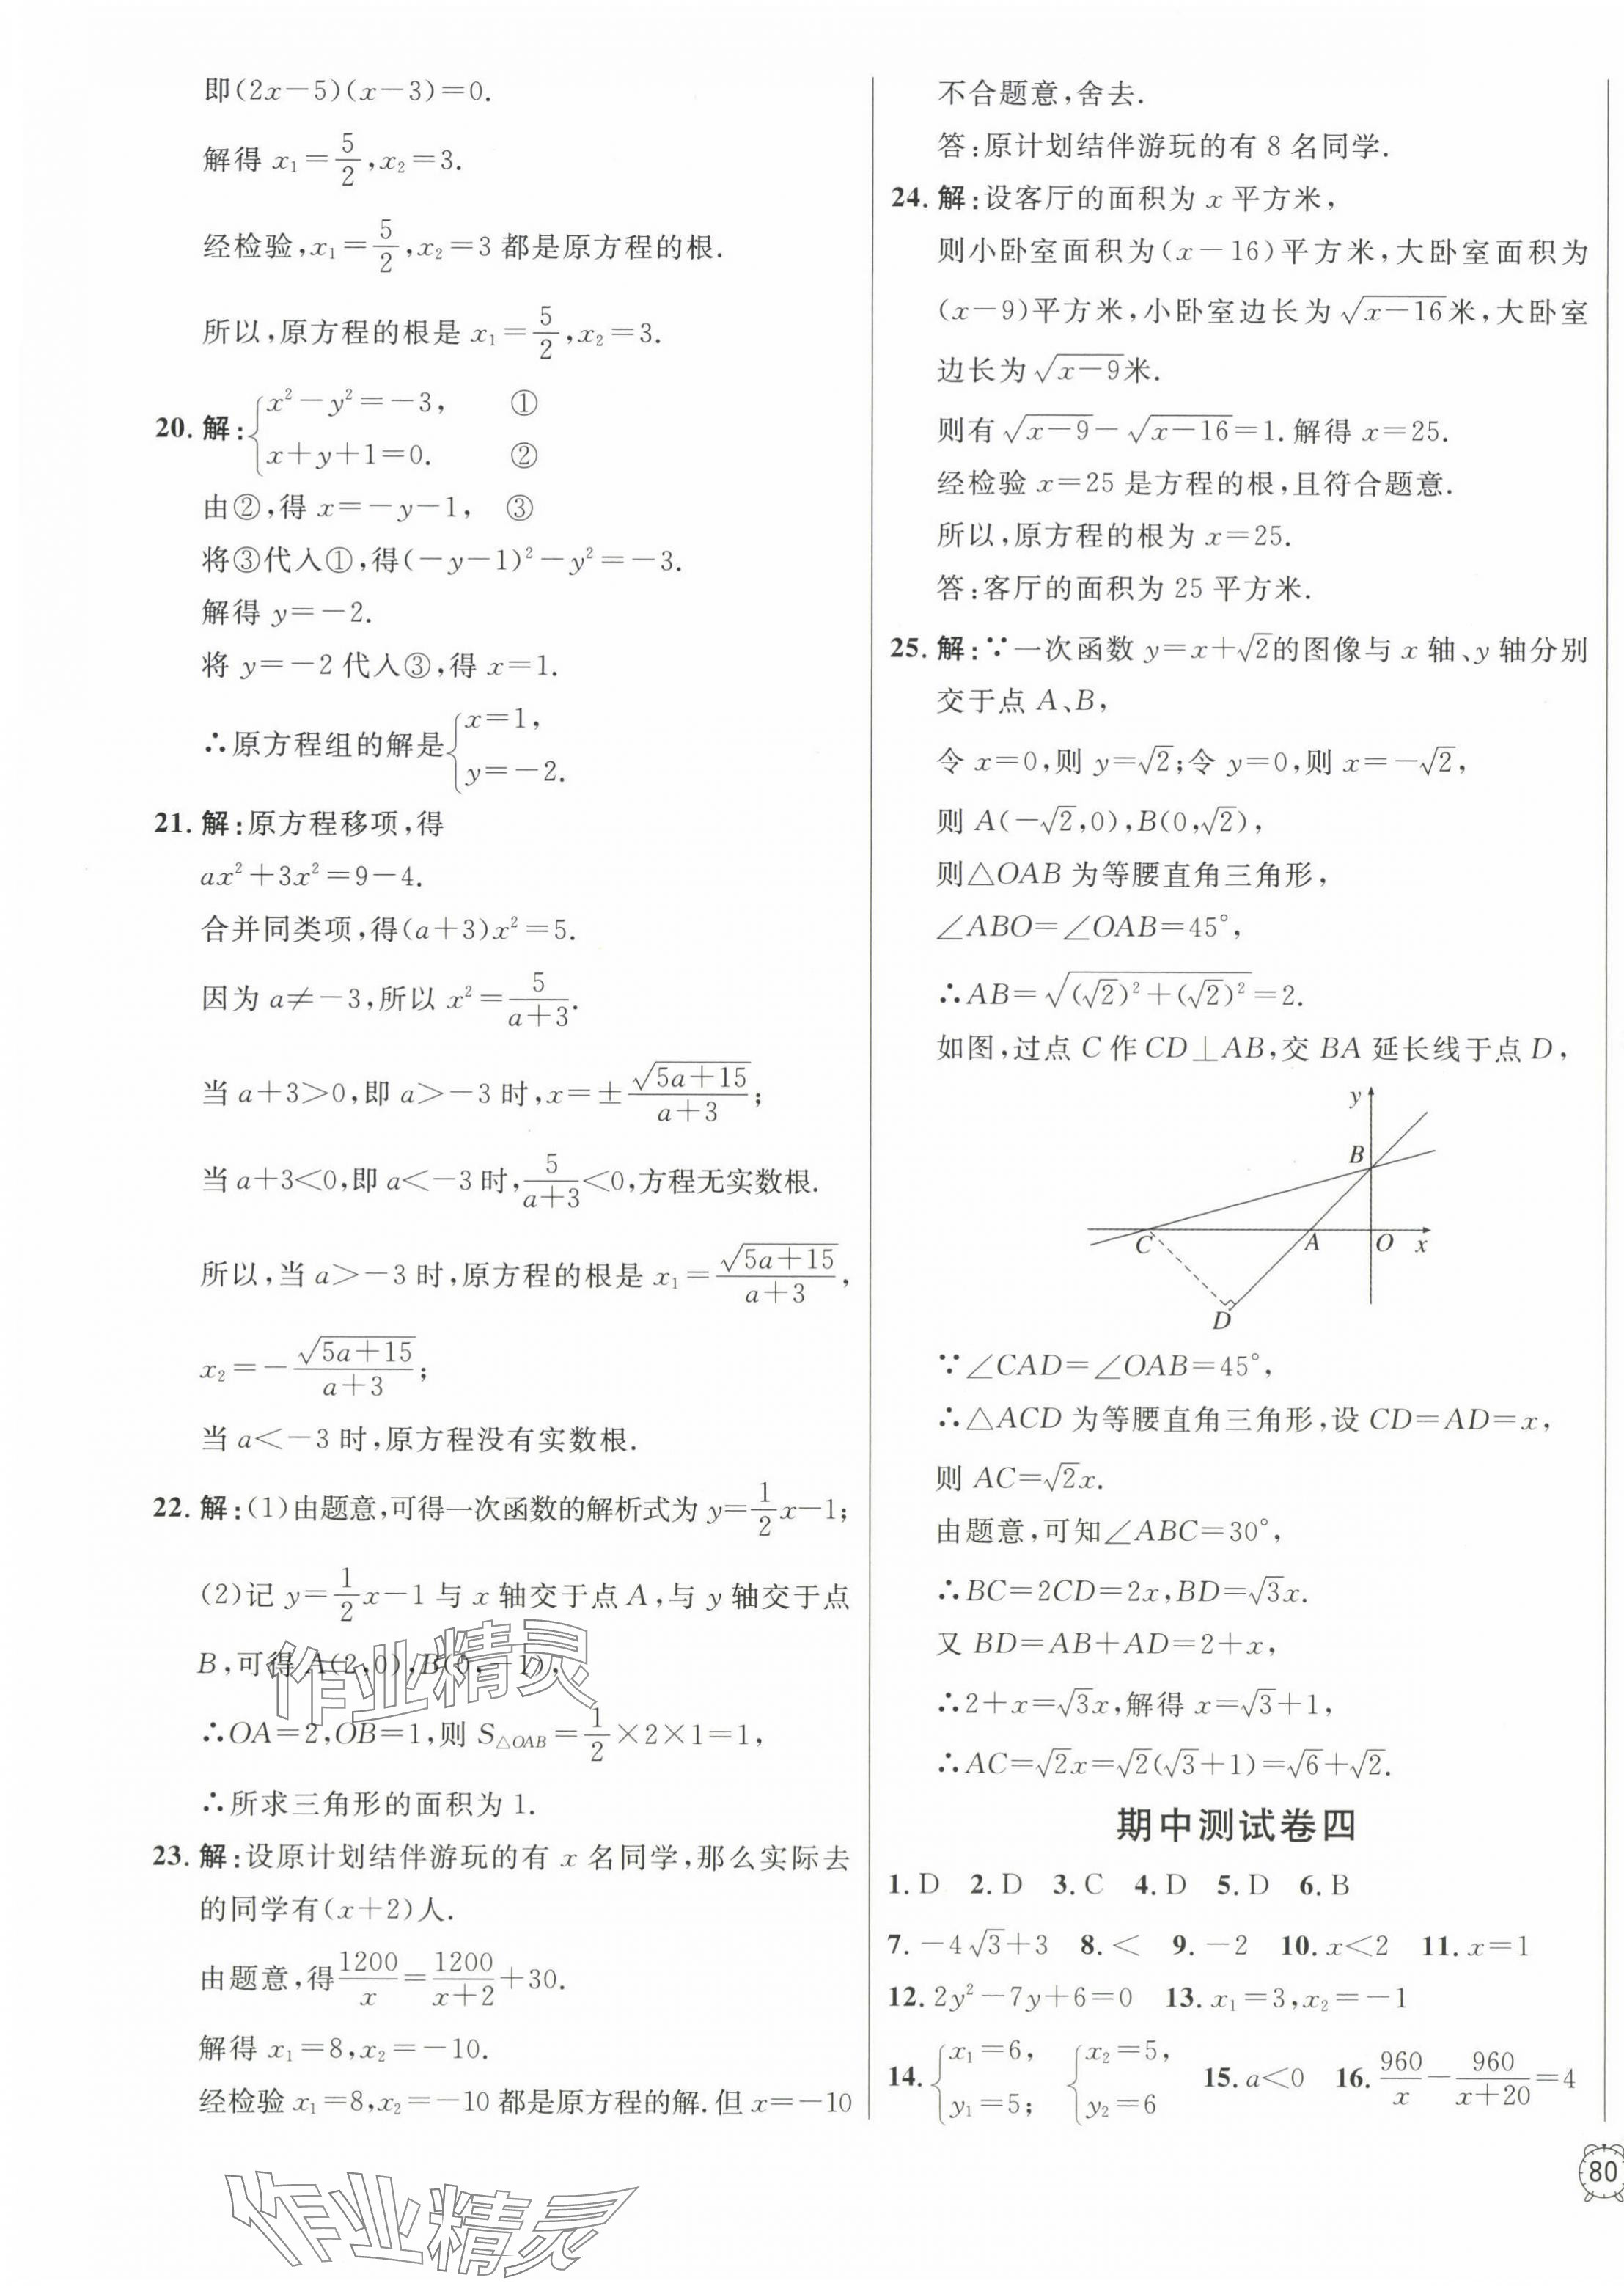 即(2x－5)(x－3)＝0.
解得 x₁＝5/2,x₂＝3.
经检验,x₁＝5/2,x₂＝3 都是原方程的根.
所以,原方程的根是 x₁＝5/2,x₂＝3.
20. 解:{x²－y²＝－3, ①
x＋y＋1＝0. ②
由②,得 x＝－y－1, ③
将③代入①,得(－y－1)²－y²＝－3.
解得 y＝－2.
将 y＝－2 代入③,得 x＝1.
∴原方程组的解是{x＝1,
y＝－2.
21. 解:原方程移项,得
ax²＋3x²＝9－4.
合并同类项,得(a＋3)x²＝5.
因为 a≠－3,所以 x²＝5/(a＋3).
当 a＋3＞0,即 a＞－3 时,x＝±√(5a＋15)/(a＋3);
当 a＋3＜0,即 a＜－3 时,5/(a＋3)＜0,方程无实数根.
所以,当 a＞－3 时,原方程的根是 x₁＝√(5a＋15)/(a＋3),
x₂＝－√(5a＋15)/(a＋3);
当 a＜－3 时,原方程没有实数根.
22. 解:(1)由题意,可得一次函数的解析式为 y＝1/2x－1;
(2)记 y＝1/2x－1 与 x 轴交于点 A,与 y 轴交于点
B,可得 A(2,0),B(0,－1),
∴OA＝2,OB＝1,则 S△OAB＝1/2×2×1＝1,
∴所求三角形的面积为 1.
23. 解:设原计划结伴游玩的有 x 名同学,那么实际去
的同学有(x＋2)人.
由题意,得1200/x＝1200/(x＋2)＋30.
解得 x₁＝8,x₂＝－10.
经检验 x₁＝8,x₂＝－10 都是原方程的解.但 x＝－10
作业精灵
作业精灵
不合题意,舍去.
答:原计划结伴游玩的有 8 名同学.
24. 解:设客厅的面积为 x 平方米,
则小卧室面积为(x－16)平方米,大卧室面积为
(x－9)平方米,小卧室边长为√(x－16)米,大卧室
边长为√(x－9)米.
则有√(x－9)－√(x－16)＝1.解得 x＝25.
经检验 x＝25 是方程的根,且符合题意.
所以,原方程的根为 x＝25.
答:客厅的面积为 25 平方米.
25. 解:∵一次函数 y＝x＋√2的图像与 x 轴、y 轴分别
交于点 A、B,
令 x＝0,则 y＝√2;令 y＝0,则 x＝－√2,
则 A(－√2,0),B(0,√2),
则△OAB 为等腰直角三角形,
∠ABO＝∠OAB＝45°,
∴AB＝√((√2)²＋(√2)²)＝2.
如图,过点 C 作 CD⊥AB,交 BA 延长线于点 D,
y
B
C A O x
D
∵∠CAD＝∠OAB＝45°,
∴△ACD 为等腰直角三角形,设 CD＝AD＝x,
则 AC＝√2x.
由题意,可知∠ABC＝30°,
∴BC＝2CD＝2x,BD＝√3x.
又 BD＝AB＋AD＝2＋x,
∴2＋x＝√3x,解得 x＝√3＋1,
∴AC＝√2x＝√2(√3＋1)＝√6＋√2.
期中测试卷四
1. D 2. D 3. C 4. D 5. D 6. B
7. －4√3＋3 8. ＜ 9. －2 10. x＜2 11. x＝1
12. 2y²－7y＋6＝0 13. x₁＝3,x₂＝－1
14. {x₁＝6, y₁＝5; {x₂＝5, y₂＝6 15. a＜0 16. 960/x－960/(x＋20)＝4
80